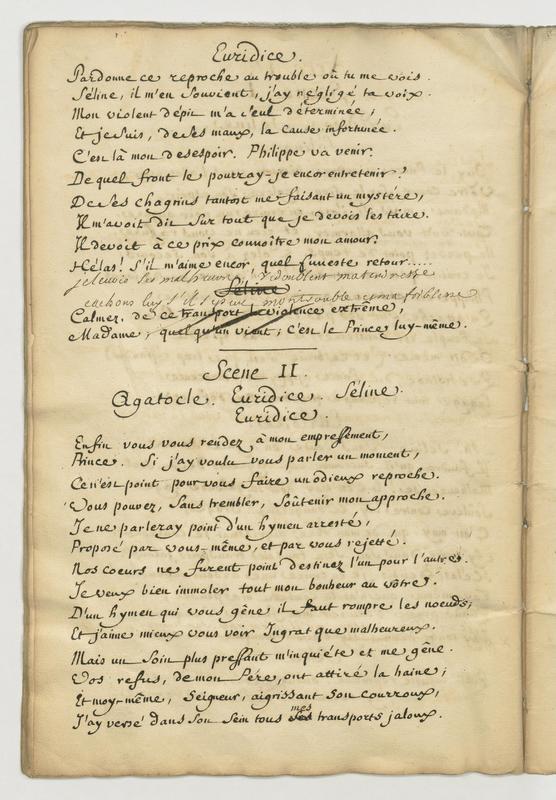 Euridice.
Pardonne ce reproche au trouble où tu me vois.
Séline, il m'en souvient, j'ay négligé ta voix.
Mon violent dépit m'a seul déterminée;
Et je suis, de ses maux, la cause infortunée.
C'est là mon desespoir. Philippe va venir.
De quel front le pourray-je encor entretenir?
De ses chagrins tantost me faisant un mystére,
Il m'avoit dit sur tout que je devois les taire.
Il devoit à ce prix connoître mon amour.
Hélas! S'il m'aime encor, quel funeste retour.....
ses malheurs redoublent ma tendresse
cachons luy s'il se peut, mon trouble et ma foiblesse
Séline
Calmez, de ce transport la violence extrême;
Madame, quelqu'un vient; c'est le Prince luy-même.
Scene II.
Agatocle. Euridice. Séline.
Euridice.
Enfin vous vous rendez à mon empressement,
Prince. Si j'ay voulu vous parler un moment,
Ce n'est point pour vous faire un odieux reproche.
Vous pouvez, sans trembler, soûtenir mon approche.
Je ne parleray point d'un hymen arresté,
Proposé par vous-même, et par vous rejetté.
Nos coeurs ne furent point destinez l'un pour l'autre.
Je veux bien immoler tout mon bonheur au vôtre.
D'un hymen qui vous gêne il faut rompre les noeuds;
Et j'aime mieux vous voir Ingrat que malheureux.
Mais un soin plus pressant m'inquiéte et me gêne.
Vos refus, de mon Pére, ont attiré la haine;
Et moy-même, Seigneur, aigrissant son courroux,
J'ay versé dans son sein tous mes transports jaloux.